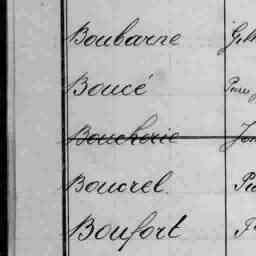 Boubarne
Boucé
Boucherie
Bourrel
Boufort